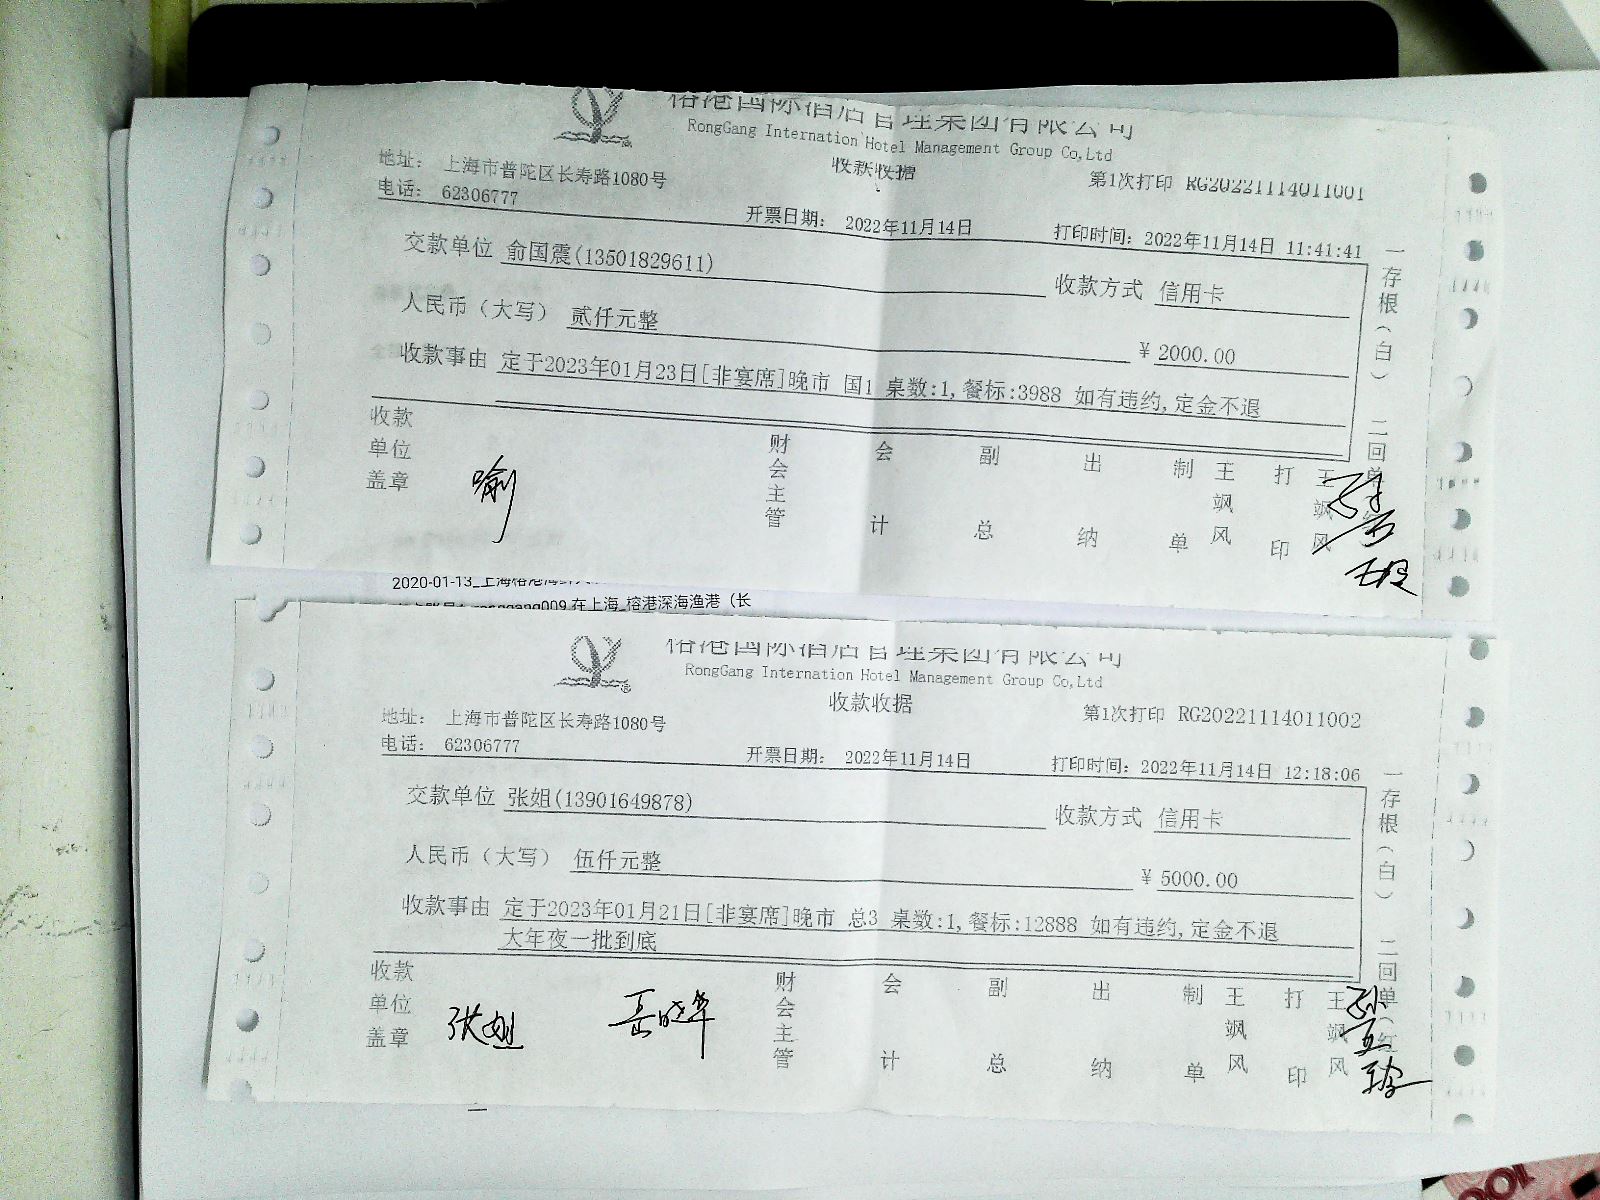 榕港国际酒店管理集团有限公司
RongGang Internation Hotel Management Group Co,Ltd
收款收据
地址： 上海市普陀区长寿路1080号
第1次打印 RG20221114011001
电话： 62306777
开票日期： 2022年11月14日
打印时间：2022年11月14日 11:41:41
交款单位 俞国震(13501829611)
收款方式 信用卡
人民币（大写） 贰仟元整
¥ 2000.00
收款事由 定于2023年01月23日[非宴席]晚市 国1 桌数:1,餐标:3988 如有违约,定金不退
收款单位盖章
喻
财会主管
会计
副总
出纳
制单
王飒风
打印
王飒风
一存根（白）
二回单
2020-01-13_上海榕港海鲜
009 在上海_榕港深海渔港（长
榕港国际酒店管理集团有限公司
RongGang Internation Hotel Management Group Co,Ltd
收款收据
地址： 上海市普陀区长寿路1080号
第1次打印 RG20221114011002
电话： 62306777
开票日期： 2022年11月14日
打印时间：2022年11月14日 12:18:06
交款单位 张姐(13901649878)
收款方式 信用卡
人民币（大写） 伍仟元整
¥ 5000.00
收款事由 定于2023年01月21日[非宴席]晚市 总3 桌数:1,餐标:12888 如有违约,定金不退
大年夜一批到底
收款单位盖章
张姐
岳晓华
财会主管
会计
副总
出纳
制单
王飒风
打印
王飒风
一存根（白）
二回单（红
100